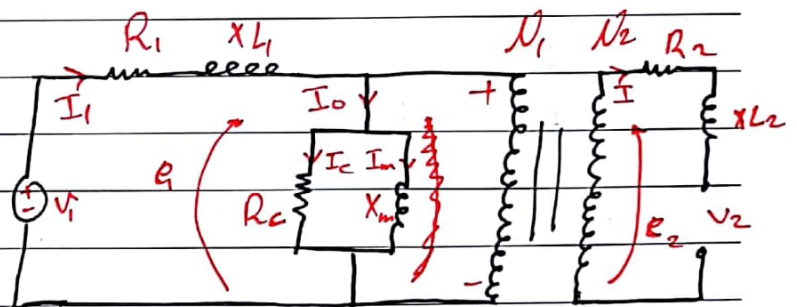 R₁ XL₁ N₁ N₂ R₂
I₁ I₀ + I XL₂
e₁ Ic Im
+ - V₁ Rc Xm e₂ V₂
-